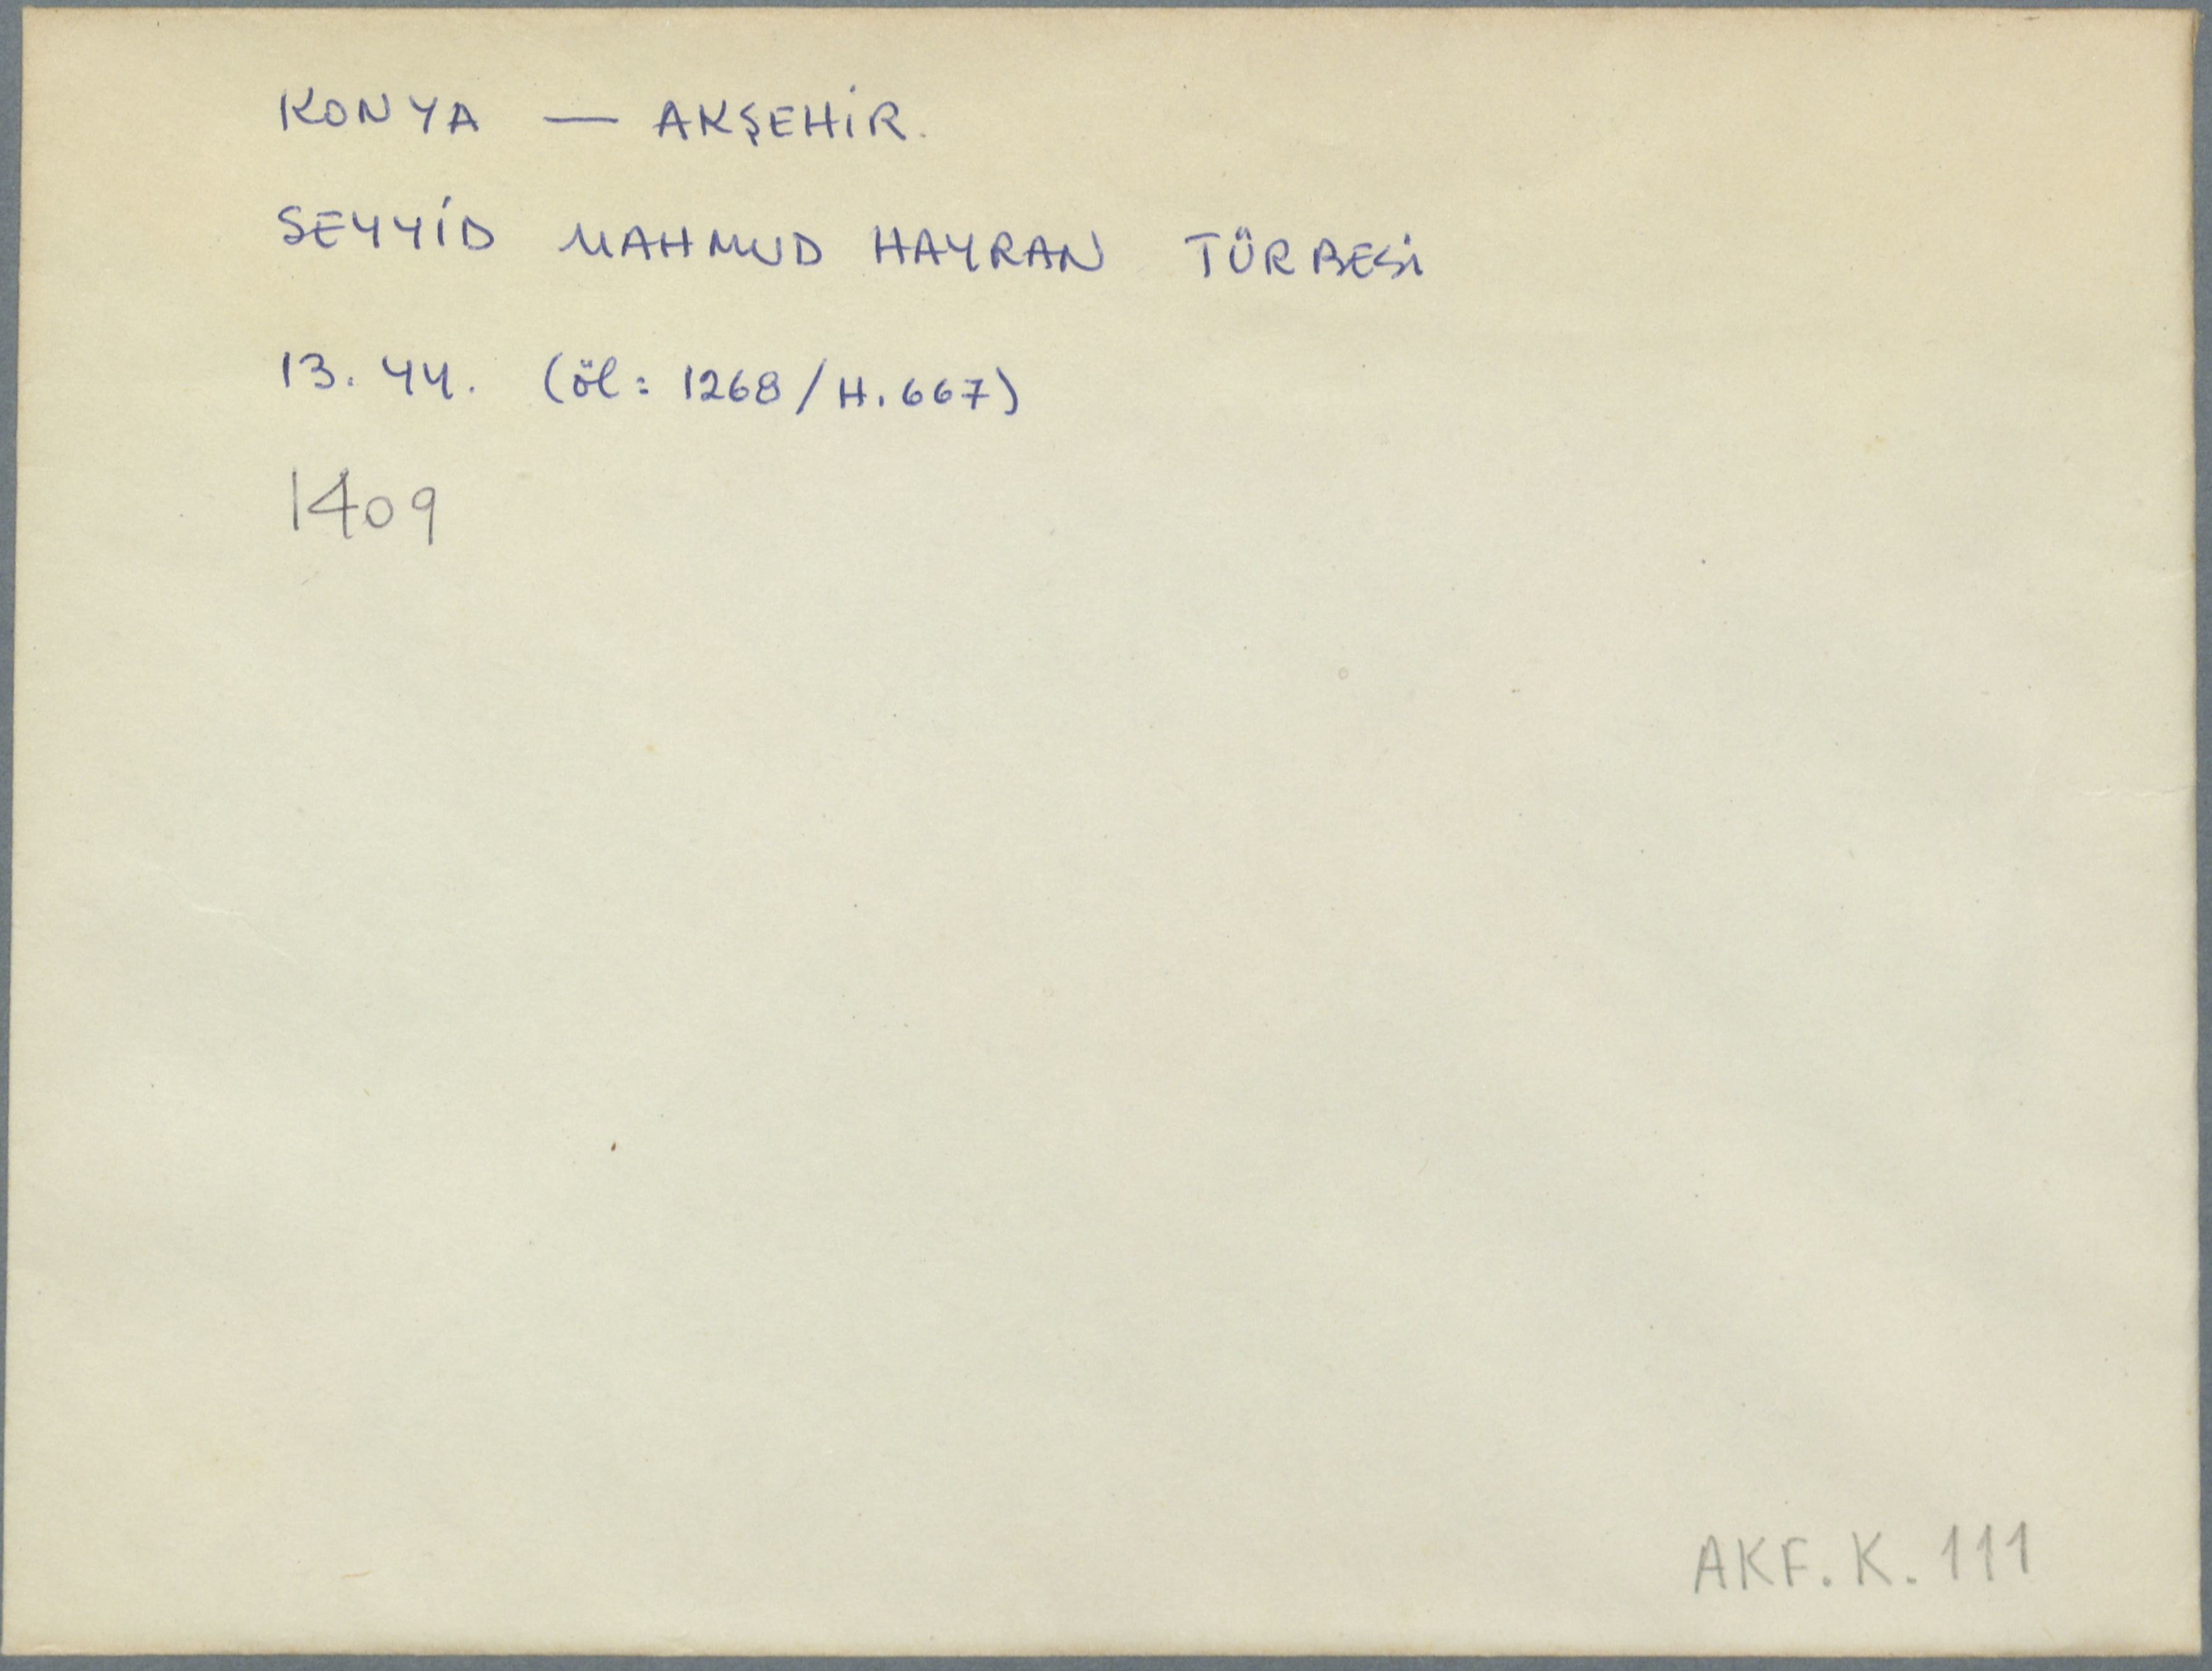 KONYA — AKŞEHİR.
SEYYİD MAHMUD HAYRAN TÜRBESİ
13. YY. (öl: 1268/H.667)
1409
AKF.K.111